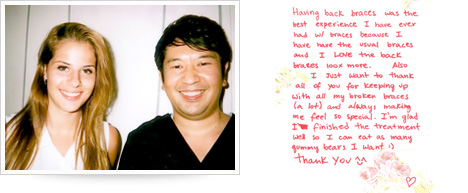 Having back braces was the
best experience I have ever
had w/ braces because I
have have the usual braces
and I LOVE the back
braces 100x more. Also
I just want to thank
all of you for keeping up
with all my broken braces
(a lot) and always making
me feel so special. I'm glad
I finished the treatment
well so I can eat as many
gummy bears I want :)
Thank you